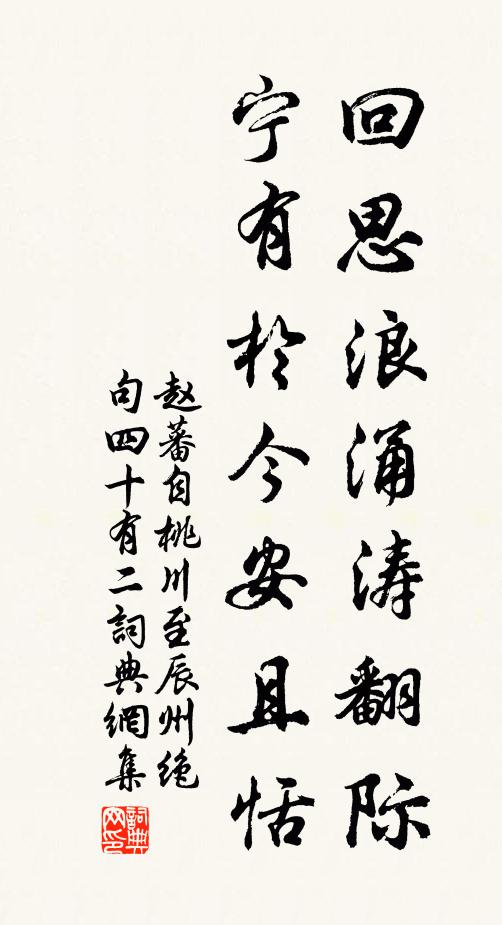 回思浪涌涛翻际
宁有於今安且恬
赵蕃自桃川至辰州绝
句四十有二詞典網集
詞典
网印